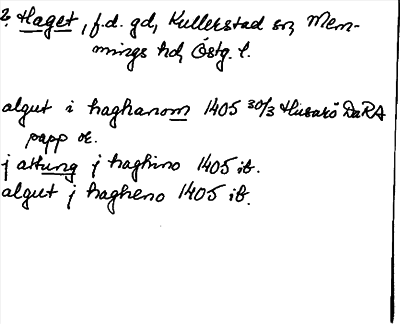 2. Haget, f.d. gd, Kullerstad sn, Mem-
mings hd, Östg. l.
algut i haghanom 1405 30/3 Husarö DaRA
papp or.
j attung j haghino 1405 ib.
algut j hagheno 1405 ib.